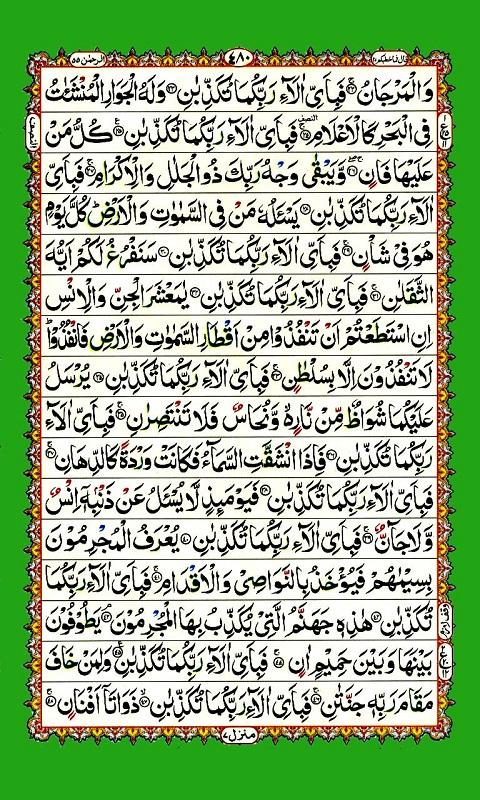 قال فما خطبكم ٢٧ ٤٨٠ الرحمٰن ٥٥
وَالْمَرْجَانُ ﴿٢٢﴾ فَبِاَیِّ اٰلَآءِ رَبِّكُمَا تُكَذِّبٰنِ ﴿٢٣﴾ وَلَهُ الْجَوَارِ الْمُنْشَئٰتُ
فِی الْبَحْرِ كَالْاَعْلَامِ ﴿٢٤﴾ فَبِاَیِّ اٰلَآءِ رَبِّكُمَا تُكَذِّبٰنِ ﴿٢٥﴾ كُلُّ مَنْ
عَلَیْهَا فَانٍ ﴿٢٦﴾ وَّیَبْقٰی وَجْهُ رَبِّكَ ذُو الْجَلٰلِ وَالْاِكْرَامِ ﴿٢٧﴾ فَبِاَیِّ
اٰلَآءِ رَبِّكُمَا تُكَذِّبٰنِ ﴿٢٨﴾ یَسْـَٔلُهٗ مَنْ فِی السَّمٰوٰتِ وَالْاَرْضِ ؕ كُلَّ یَوْمٍ
هُوَ فِیْ شَاْنٍ ﴿٢٩﴾ فَبِاَیِّ اٰلَآءِ رَبِّكُمَا تُكَذِّبٰنِ ﴿٣٠﴾ سَنَفْرُغُ لَكُمْ اَیُّهَ
الثَّقَلٰنِ ﴿٣١﴾ فَبِاَیِّ اٰلَآءِ رَبِّكُمَا تُكَذِّبٰنِ ﴿٣٢﴾ یٰمَعْشَرَ الْجِنِّ وَالْاِنْسِ
اِنِ اسْتَطَعْتُمْ اَنْ تَنْفُذُوْا مِنْ اَقْطَارِ السَّمٰوٰتِ وَالْاَرْضِ فَانْفُذُوْا ؕ
لَا تَنْفُذُوْنَ اِلَّا بِسُلْطٰنٍ ﴿٣٣﴾ فَبِاَیِّ اٰلَآءِ رَبِّكُمَا تُكَذِّبٰنِ ﴿٣٤﴾ یُرْسَلُ
عَلَیْكُمَا شُوَاظٌ مِّنْ نَّارٍ ۙ۬ وَّنُحَاسٌ فَلَا تَنْتَصِرٰنِ ﴿٣٥﴾ فَبِاَیِّ اٰلَآءِ
رَبِّكُمَا تُكَذِّبٰنِ ﴿٣٦﴾ فَاِذَا انْشَقَّتِ السَّمَآءُ فَكَانَتْ وَرْدَةً كَالدِّهَانِ ﴿٣٧﴾
فَبِاَیِّ اٰلَآءِ رَبِّكُمَا تُكَذِّبٰنِ ﴿٣٨﴾ فَیَوْمَئِذٍ لَّا یُسْـَٔلُ عَنْ ذَنْۢبِهٖۤ اِنْسٌ
وَّلَا جَآنٌّ ﴿٣٩﴾ فَبِاَیِّ اٰلَآءِ رَبِّكُمَا تُكَذِّبٰنِ ﴿٤٠﴾ یُعْرَفُ الْمُجْرِمُوْنَ
بِسِیْمٰهُمْ فَیُؤْخَذُ بِالنَّوَاصِیْ وَالْاَقْدَامِ ﴿٤١﴾ فَبِاَیِّ اٰلَآءِ رَبِّكُمَا
تُكَذِّبٰنِ ﴿٤٢﴾ هٰذِهٖ جَهَنَّمُ الَّتِیْ یُكَذِّبُ بِهَا الْمُجْرِمُوْنَ ﴿٤٣﴾ یَطُوْفُوْنَ
بَیْنَهَا وَبَیْنَ حَمِیْمٍ اٰنٍ ﴿٤٤﴾ فَبِاَیِّ اٰلَآءِ رَبِّكُمَا تُكَذِّبٰنِ ﴿٤٥﴾ وَلِمَنْ خَافَ
مَقَامَ رَبِّهٖ جَنَّتٰنِ ﴿٤٦﴾ فَبِاَیِّ اٰلَآءِ رَبِّكُمَا تُكَذِّبٰنِ ﴿٤٧﴾ ذَوَاتَاۤ اَفْنَانٍ ﴿٤٨﴾
منزل ٧